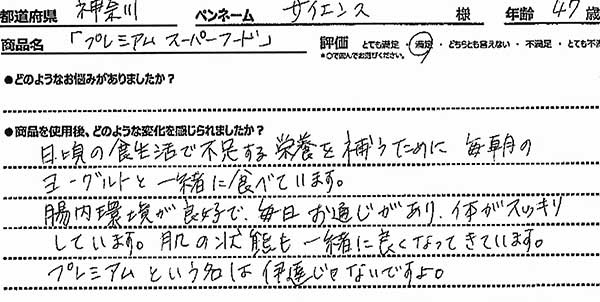 都道府県 神奈川 ペンネーム サイエンス 様 年齢 47歳
商品名 「プレミアム スーパーフード」 評価 とても満足・満足・どちらとも言えない・不満足・とても不満
*○で囲んでお選びください。
●どのようなお悩みがありましたか？
●商品を使用後、どのような変化を感じられましたか？
日頃の食生活で不足する栄養を補うために 毎朝の
ヨーグルトと一緒に食べています。
腸内環境が良好で、毎日お通じがあり、体がスッキリ
しています。肌の状態も一緒に良くなってきています。
プレミアムという名は伊達じゃないですよ。